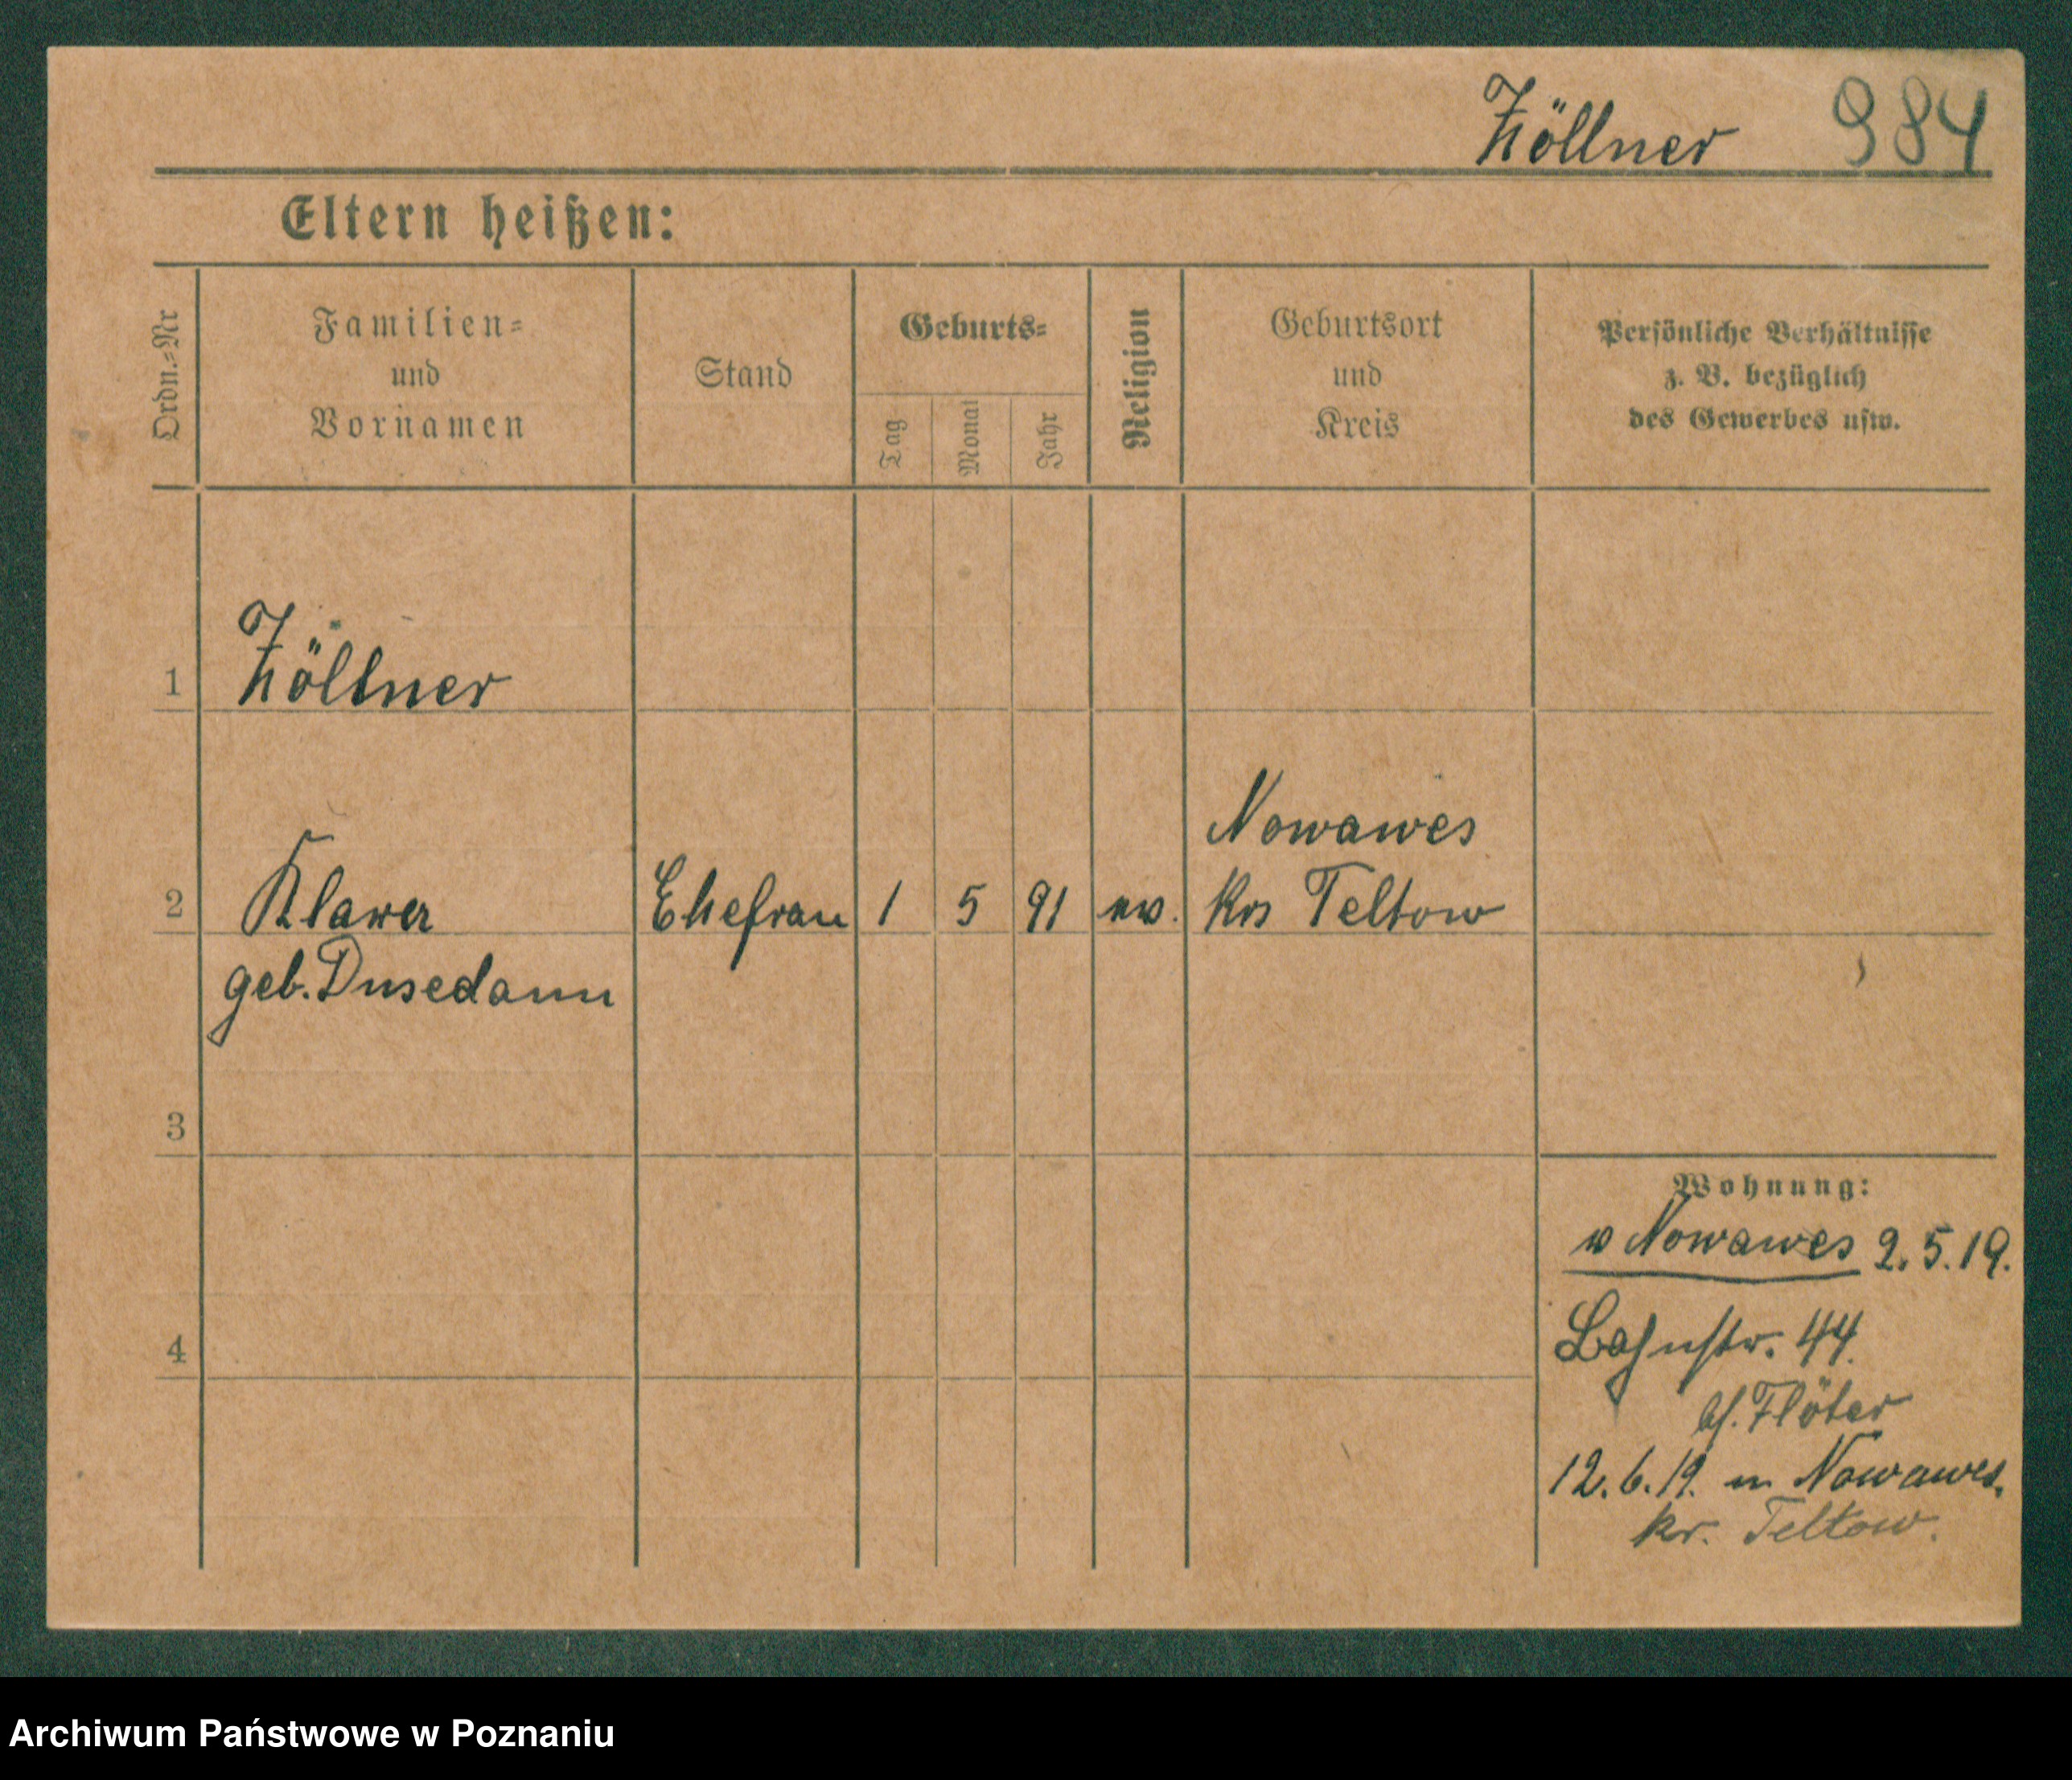 Zöllner 984
Eltern heißen:
Ordn.=Nr
Familien=
und
Vornamen
Stand
Geburts=
Tag
Monat
Jahr
Religion
Geburtsort
und
Kreis
Persönliche Verhältnisse
z. B. bezüglich
des Gewerbes usw.
1 Zöllner
Nowawes
2 Klawer Ehefrau 1 5 91 ev. Krs Teltow
geb. Dusedann
3
Wohnung:
v Nowawes 2.5.19.
Bahnstr. 44.
4
bf. Flöter
12.6.19. n Nowawes.
Kr. Teltow.
Archiwum Państwowe w Poznaniu